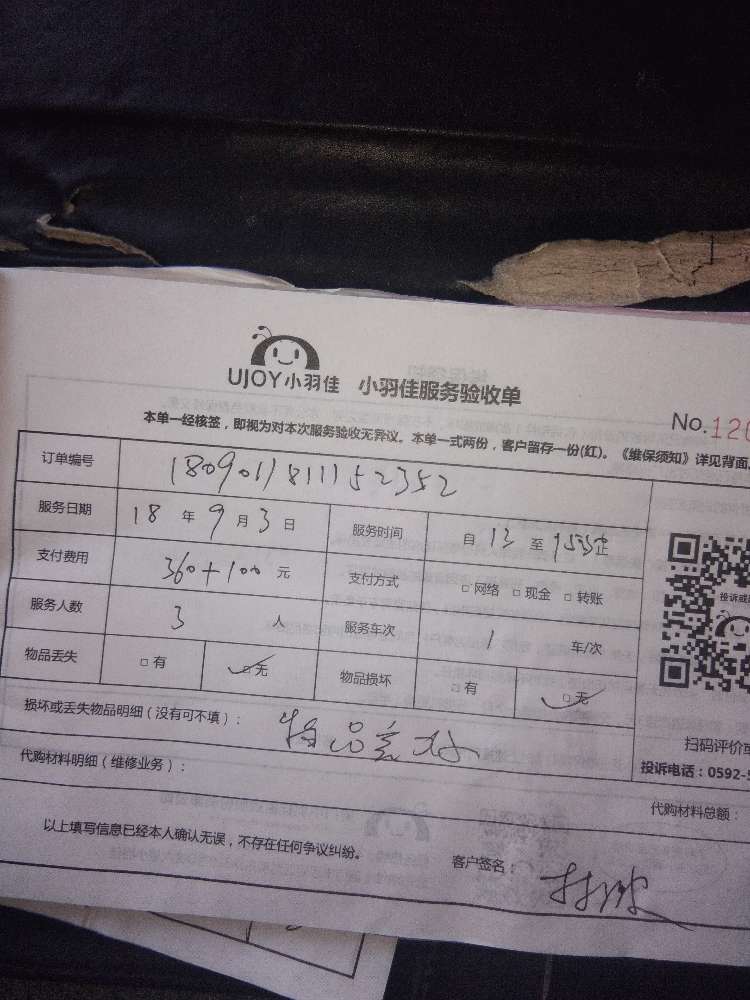 UJOY小羽佳 小羽佳服务验收单
No.120
本单一经核签，即视为对本次服务验收无异议。本单一式两份，客户留存一份(红)。《维保须知》详见背面。
订单编号 1809011811152352
服务日期 18 年 9 月 3 日 服务时间 自 13 至
支付费用 360+100 元 支付方式 □网络 □现金 □转账
服务人数 3 人 服务车次 1 车/次
物品丢失 □有 □无 物品损坏 □有 □无
损坏或丢失物品明细（没有可不填）： 物品完好
代购材料明细（维修业务）：
投诉或
扫码评价或
投诉电话：0592-5
代购材料总额：
以上填写信息已经本人确认无误，不存在任何争议纠纷。
客户签名：